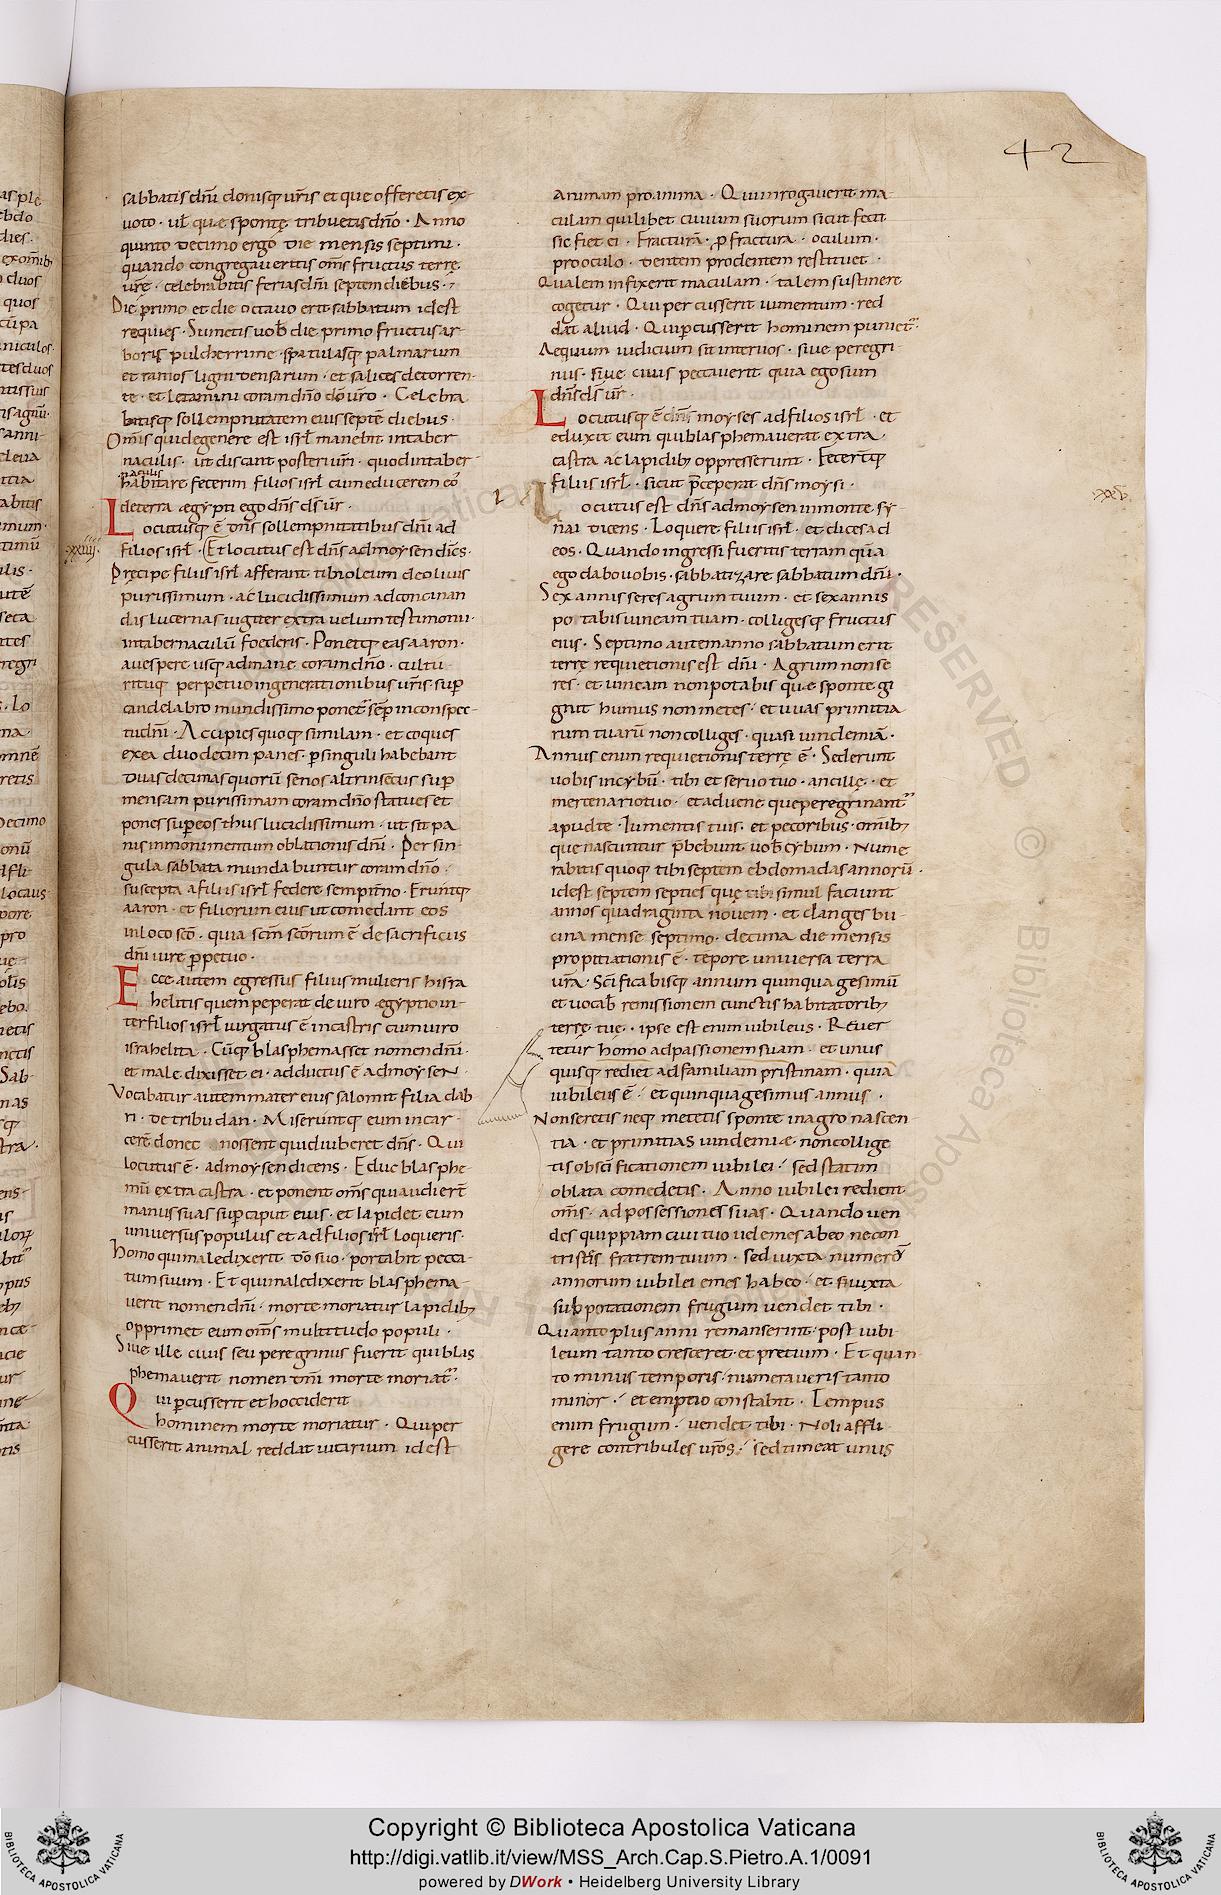 42
sabbatis dn̄i donisq; ur̄is et que offeretis ex
uoto · ul̄ quæ sponte tribuetis dn̄o · Anno
quinto decimo ergo die mensis septimi ·
quando congregaueritis om̄s fructus terrę
ur̄ę · celebrabitis ferias dn̄i septem diebus ·
Die primo et die octauo erit sabbatum idest
requies · Sumetis uob̄ die primo fructus ar
boris pulcherrime · spatulasq; palmarum
et ramos ligni densarum · et salices detorren
te · et letamini coram dn̄o dō ur̄o · Celebra
bitisq; sollempnitatem eius septē diebus ·
Om̄is qui degenere est isrl̄ manebit intaber
naculis · ut discant posteri ur̄i · quod intaber
naculis
habitare fecerim filios isrl̄ cum educerem eō
deterra ægypti ego dn̄s ds̄ ur̄ ·
Locutusq; ē dn̄s sollempnitatibus dn̄i ad
·xxiiii·
filios isrl̄ · Et locutus est dn̄s ad moysen dicēs ·
Precipe filiis isrl̄ afferant tibi oleum de oliuis
purissimum · ac lucidissimum ad concinan
das lucernas iugiter extra uelum testimonii ·
intabernaculū foederis · Ponetq; eas aaron ·
auespere usq; admane coram dn̄o · cultu
rituq; perpetuo in generationibus ur̄is · sup
candelabro mundissimo ponet᷑ sēp inconspec
tu dn̄i · Accipies quoq; similam · et coques
exea duodecim panes · p singuli habebant
duas decimas quorū senos altrinsecus sup
mensam purissimam coram dn̄o statues et
pones sup eos thus lucidissimum · ut sit pa
nis inmonimentum oblationis dn̄i · Per sin
gula sabbata mundabuntur coram dn̄o ·
suscepta a filiis isrl̄ federe sempitn̄o · Eruntq;
aaron · et filiorum eius ut comedant eos
inloco scō · quia scm̄ scōrum ē de sacrificiis
dn̄i iure ppetuo ·
Ecce autem egressus filius mulieris hisra
helitis quem peperat de uiro ægyptio in
ter filios isrl̄ iurgatus ē incastris cum uiro
israhelita · Cūq; blasphemasset nomen dn̄i ·
et male dixisset ei · adductus ē admoysen ·
Vocabatur autem mater eius salomit filia dab
ri · de tribu dan · Miseruntq; eum incar
cerē donec nossent quid iuberet dn̄s · Qui
locutus ē · ad moysen dicens · Educ blasphe
mū extra castra · et ponent om̄s qui audier̄t
manus suas sup caput eius · et lapidet eum
uniuersus populus et ad filios isrl̄ loqueris ·
homo qui maledixerit dō suo · portabit pecca
tum suum · Et qui maledixerit blasphema
uerit nomen dn̄i · morte moriatur lapidib;
opprimet eum om̄s multitudo populi ·
Siue ille ciuis seu peregrinus fuerit qui blas
phemauerit nomen dn̄i morte moriat᷑ ·
Qui pcusserit et hocciderit
hominem morte moriatur · Qui per
cusserit animal reddat uicarium idest
animam pro anima · Qui inrogauerit ma
culam quilibet ciuium suorum sicut fecit
sic fiet ei · Fracturā · p fractura · oculum ·
pro oculo · dentem prodentem restituet ·
Qualem infixerit maculam · talem sustinere
cogetur · Qui percusserit iumentum · red
dat aliud · Qui pcusserit hominem puniet᷑ ·
Aequum iudicium sit interuos · siue peregri
nus · siue ciuis peccauerit quia ego sum
dn̄s ds̄ ur̄ ·
Locutusq; ē dn̄s moyses ad filios isrl̄ · et
eduxit eum qui blasphemauerat extra ·
castra ac lapidib; oppresserunt · Fecer̄tq;
filiis isrl̄ · sicut p̄ceperat dn̄s moysi ·
Locutus est dn̄s admoysen inmonte sy
·xxv·
nai dicens · Loquere filiis isrl̄ · et dices ad
eos · Quando ingressi fueritis terram quā
ego dabo uobis · sabbatizare sabbatum dn̄i ·
Sex annis seres agrum tuum · et sex annis
potabis uineam tuam · colligesq; fructus
eius · Septimo autem anno sabbatum erit
terrę requietionis est dn̄i · Agrum non se
res · et uineam non potabis quæ sponte gi
gnit humus non metes · et uuas primitia
rum tuarū non colliges · quasi uindemiā ·
Annus enim requietionis terrę ē · Sed erunt
uobis incybū · tibi et seruo tuo · ancillę · et
mertenario tuo · et aduene que peregrinant᷑
apud te · Iumentis tuis · et pecoribus · omīb;
que nascuntur p̄bebunt uob̄ cybum · Nume
rabitis quoq; tibi septem ebdomadas annorū ·
idest septem septies quę tibi simul faciunt
annos quadraginta nouem · et clanges bu
cina mense septimo · decima die mensis
propitiationis ē · tēpore uniuersa terra
ur̄a · Scīficabisq; annum quinquagesimū
et uocab̄ remissionem cunctis habitatorib;
terrę tuę · ipse est enim iubileus · Reuer
tetur homo ad passionem suam · et unus
quisq; rediet ad familiam pristinam · quia
iubileus ē · et quinquagesimus annus ·
Non seretis neq; metetis sponte inagro nascen
tia · et primitias uindemiæ · non collige
tis ob scīficationem iubilei · sed statim
oblata comedetis · Anno iubilei redient
om̄s · ad possessiones suas · Quando uen
des quippiam ciui tuo uel emes abeo ne con
tristes fratrem tuum · sed iuxta numerō
annorum iubilei emes habeo · et iuxta
subpotationem frugum uendet tibi ·
Quanto plus anni remanserint · post iubi
leum tanto cresceret · et pretium · Et quan
to minus temporis · numeraueris tanto
minor · et emptio constabit · Tempus
enim frugum · uendet tibi · Noli affli
gere contribules ur̄os · sed timeat unus
Copyright © Biblioteca Apostolica Vaticana
http://digi.vatlib.it/view/MSS_Arch.Cap.S.Pietro.A.1/0091
powered by DWork • Heidelberg University Library